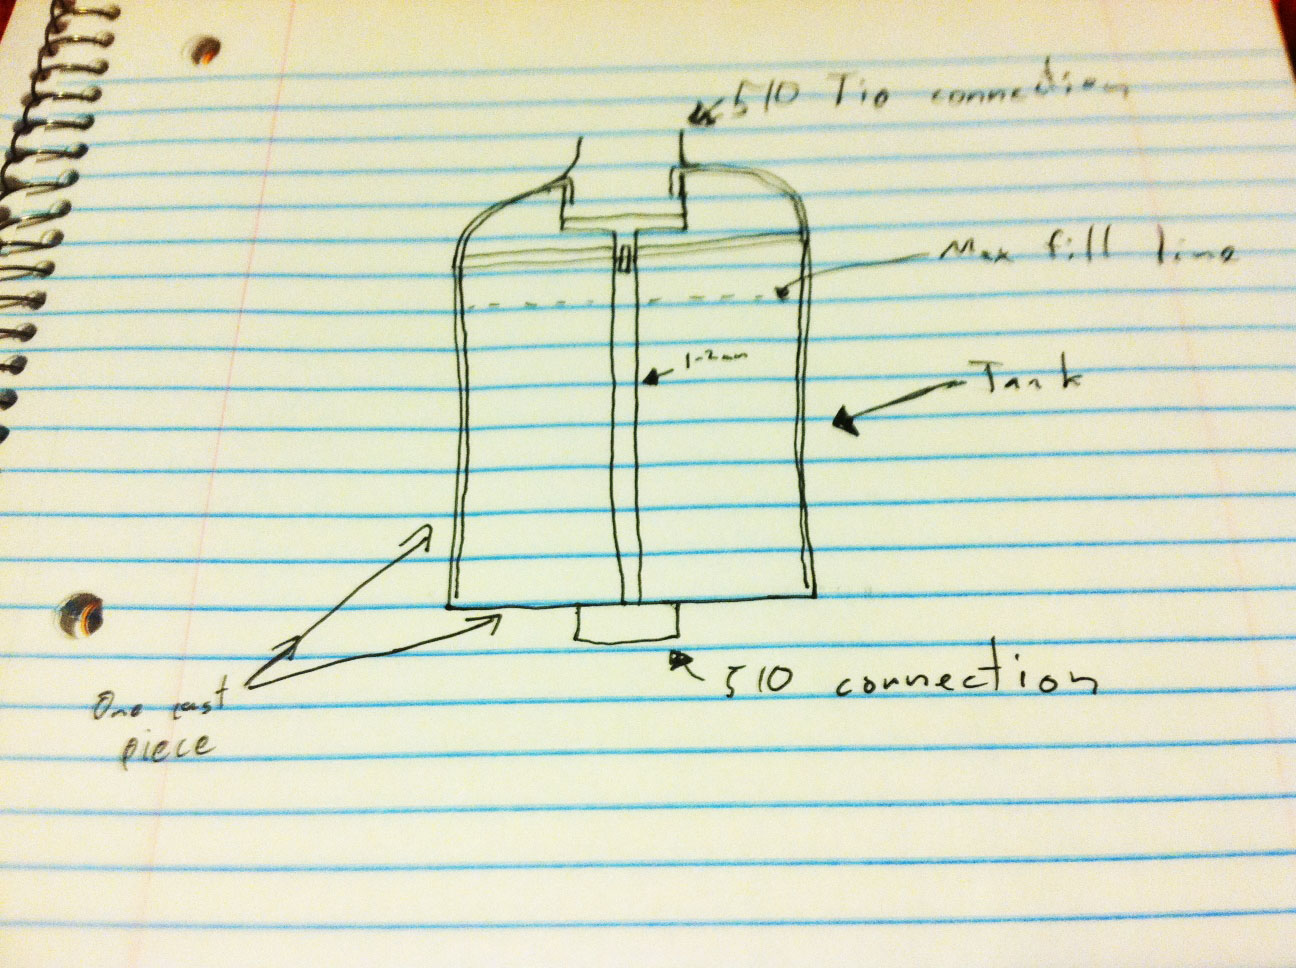 510 Tip connection
Max fill line
1-2mm
Tank
510 connection
One cast
piece